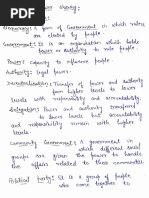 Power sharing:
Democracy: A form of Government in which rulers are elected by people.
Government: It is an organisation which holds power or Authority to rule people.
Power: Capacity to influence people.
Authority: Legal power.
Decentralisation: Transfer of power and authority from higher levels to lower levels with responsibility and accountability.
Delegation: Power and authority transferred to lower levels but accountability and responsibility remain with higher levels.
Community Government: A government in which different social groups are given the power to handle the affairs related to their communities.
Political party: It is a group of people to